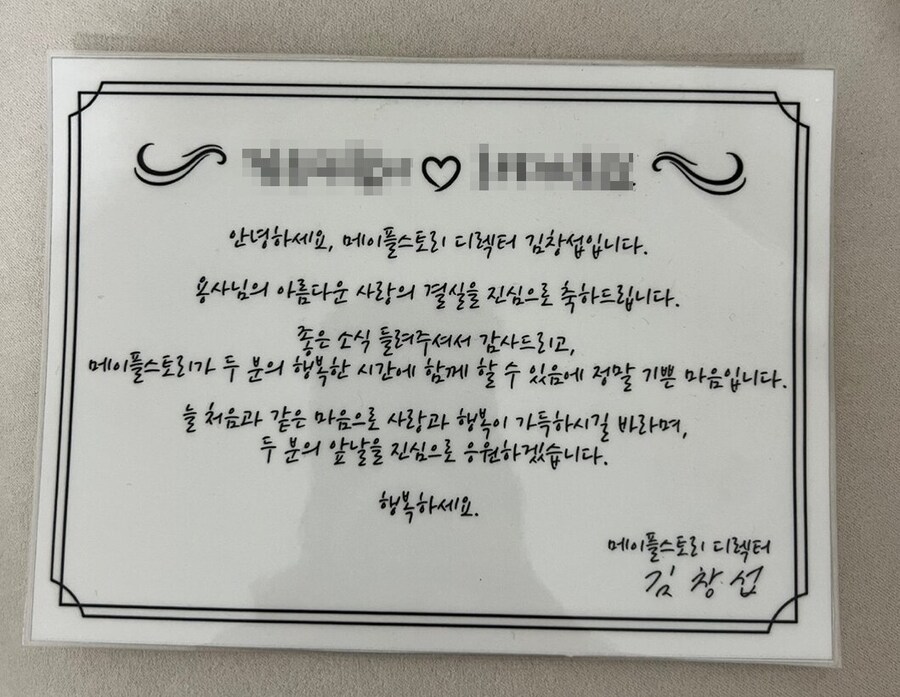 안녕하세요, 메이플스토리 디렉터 김창섭입니다.
용사님의 아름다운 사랑의 결실을 진심으로 축하드립니다.
좋은 소식 들려주셔서 감사드리고,
메이플스토리가 두 분의 행복한 시간에 함께 할 수 있음에 정말 기쁜 마음입니다.
늘 처음과 같은 마음으로 사랑과 행복이 가득하시길 바라며,
두 분의 앞날을 진심으로 응원하겠습니다.
행복하세요.
메이플스토리 디렉터
김창섭